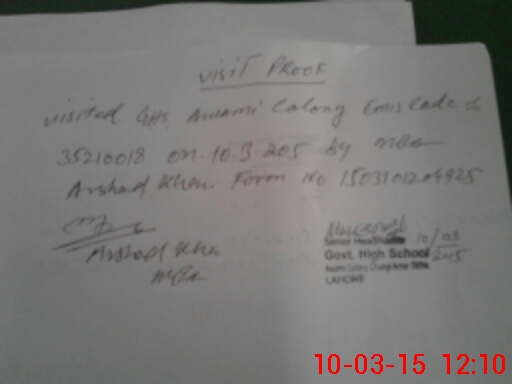 VISIT PROOF
visited GHS Awami Colony Emis Code is
35210018 on 10.3.205 by mea
Arshad Khan Form no 1503101204925
Arshad Khan
mea
10/03
2015
Senior Headmaster
Govt. High School
LAHORE
10-03-15 12:10